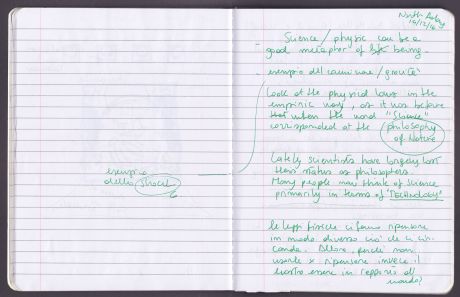 North Adby
15/12/16
Science / physic can be a
good metaphor of being.
- esempio del camminare / gravità
Look at the physical laws in the
empiric way, as it was before
when the word "Science"
corresponded at the philosophy
of Nature
Lately scientists have largely lost
their status as philosophers.
Many people now think of Science
primarily in terms of "TECHNOLOGY"
esempio
dello shock
Le leggi fisiche ci fanno ripensare
in modo diverso ciò che ci cir-
conda. Allora perché non
usarle x ripensare invece il
nostro essere in rapporto al
mondo?